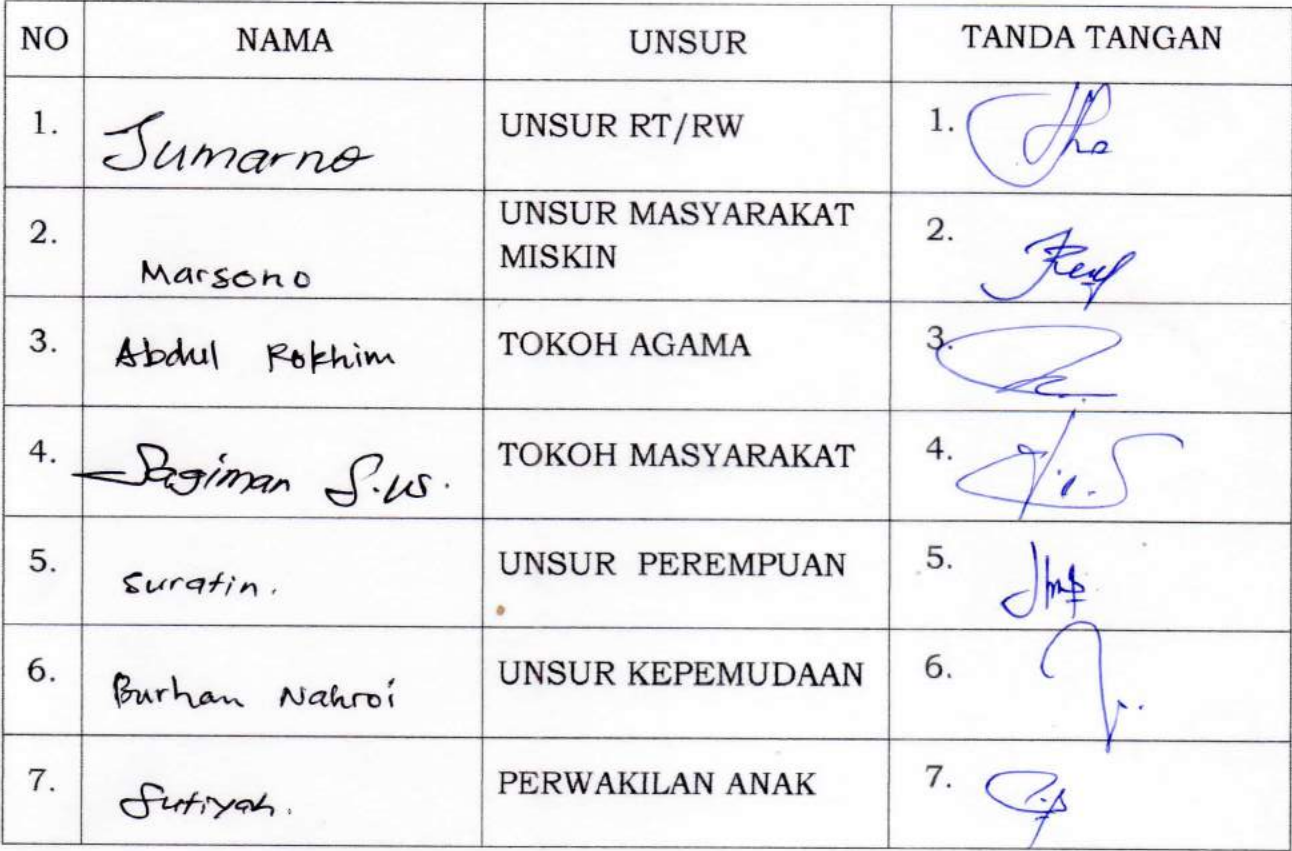 NO NAMA UNSUR TANDA TANGAN
1. Sumarno UNSUR RT/RW 1.
2. Marsono UNSUR MASYARAKAT MISKIN 2.
3. Abdul Rokhim TOKOH AGAMA 3.
4. Sagiman S.ws. TOKOH MASYARAKAT 4.
5. suratin. UNSUR PEREMPUAN 5.
6. Burhan Nahroi UNSUR KEPEMUDAAN 6.
7. Sutiyah. PERWAKILAN ANAK 7.